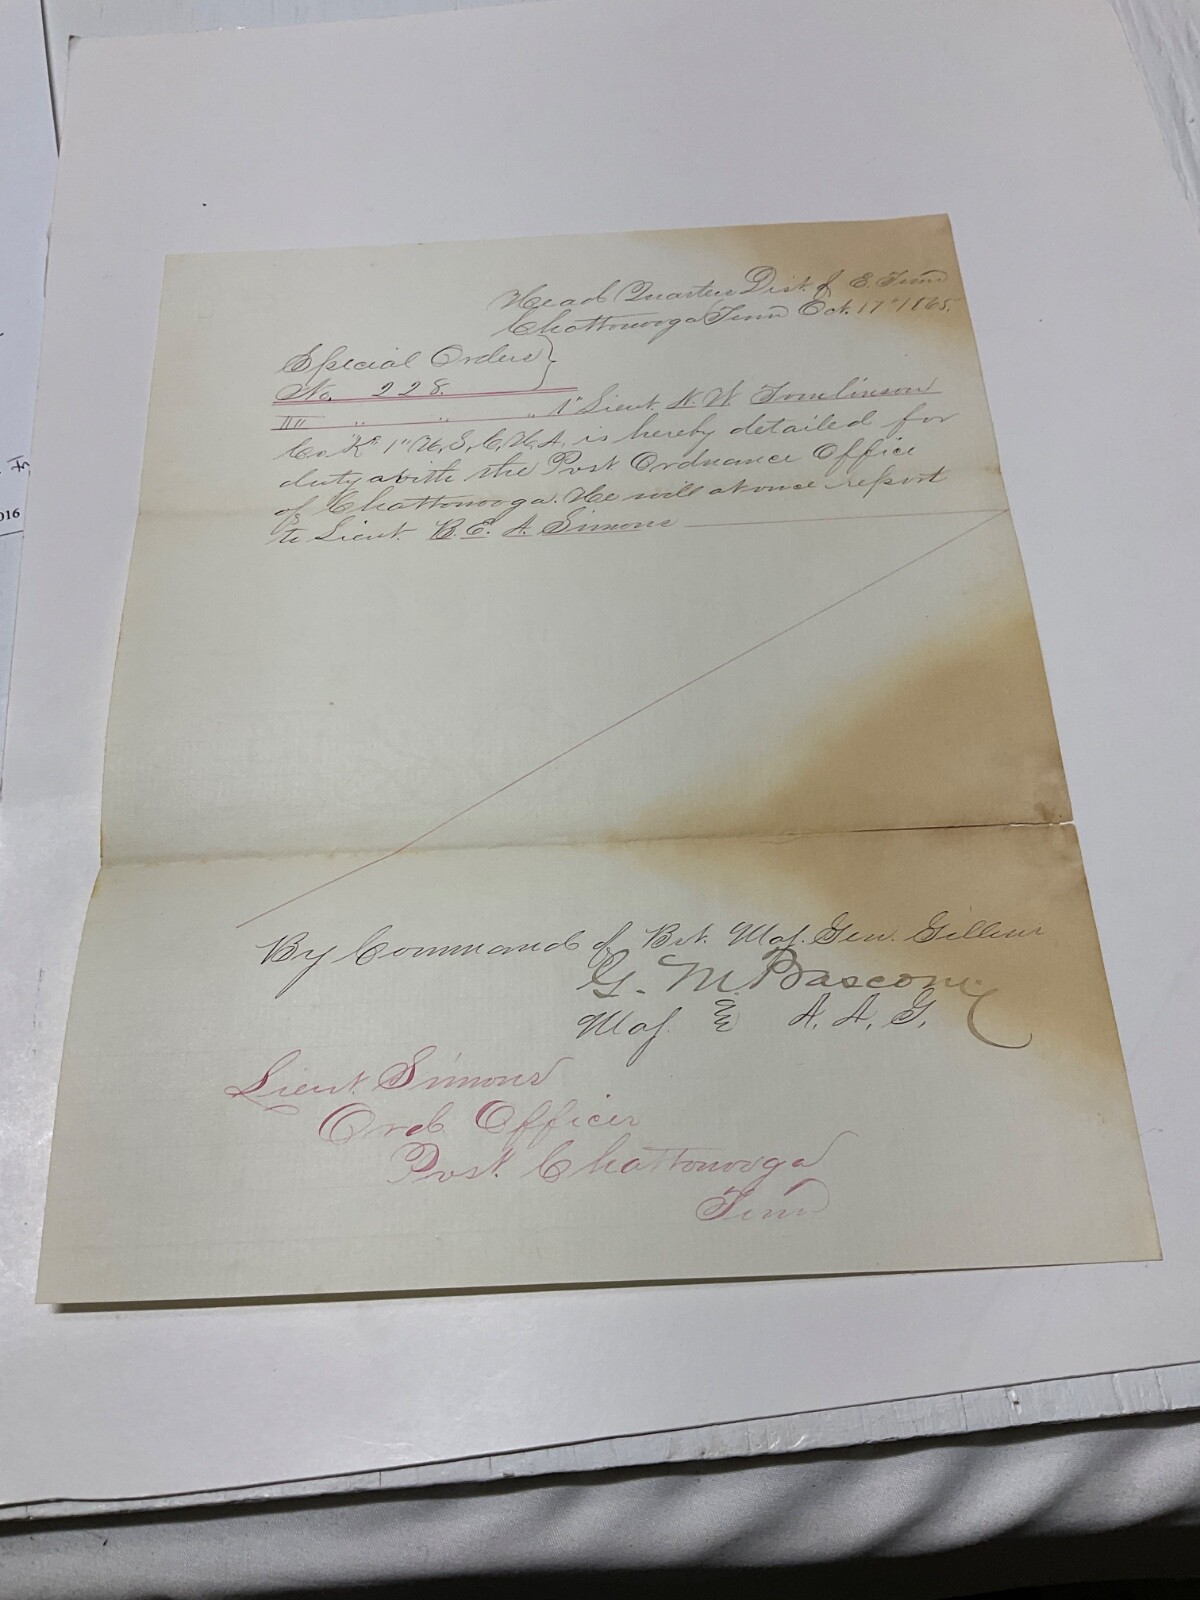 Head Quarters Dist. of E. Tenn
Chattonooga Tenn Oct. 17" 1865.
Special Orders }
No. 228.
IIII " " " 1" Lieut. N. W. Tomlinson
Co "K" 1" U, S, C, H, A, is hereby detailed for
duty with the Post Ordnance Office
of Chattonooga. He will at once report
to Lieut. B. E. A. Simons
By Command of Bvt. Maj. Gen. Gillem
G. M. Bascom
Maj. & A. A. G.
Lieut. Simons
Ord. Officer
Post. Chattonooga
Tenn
016